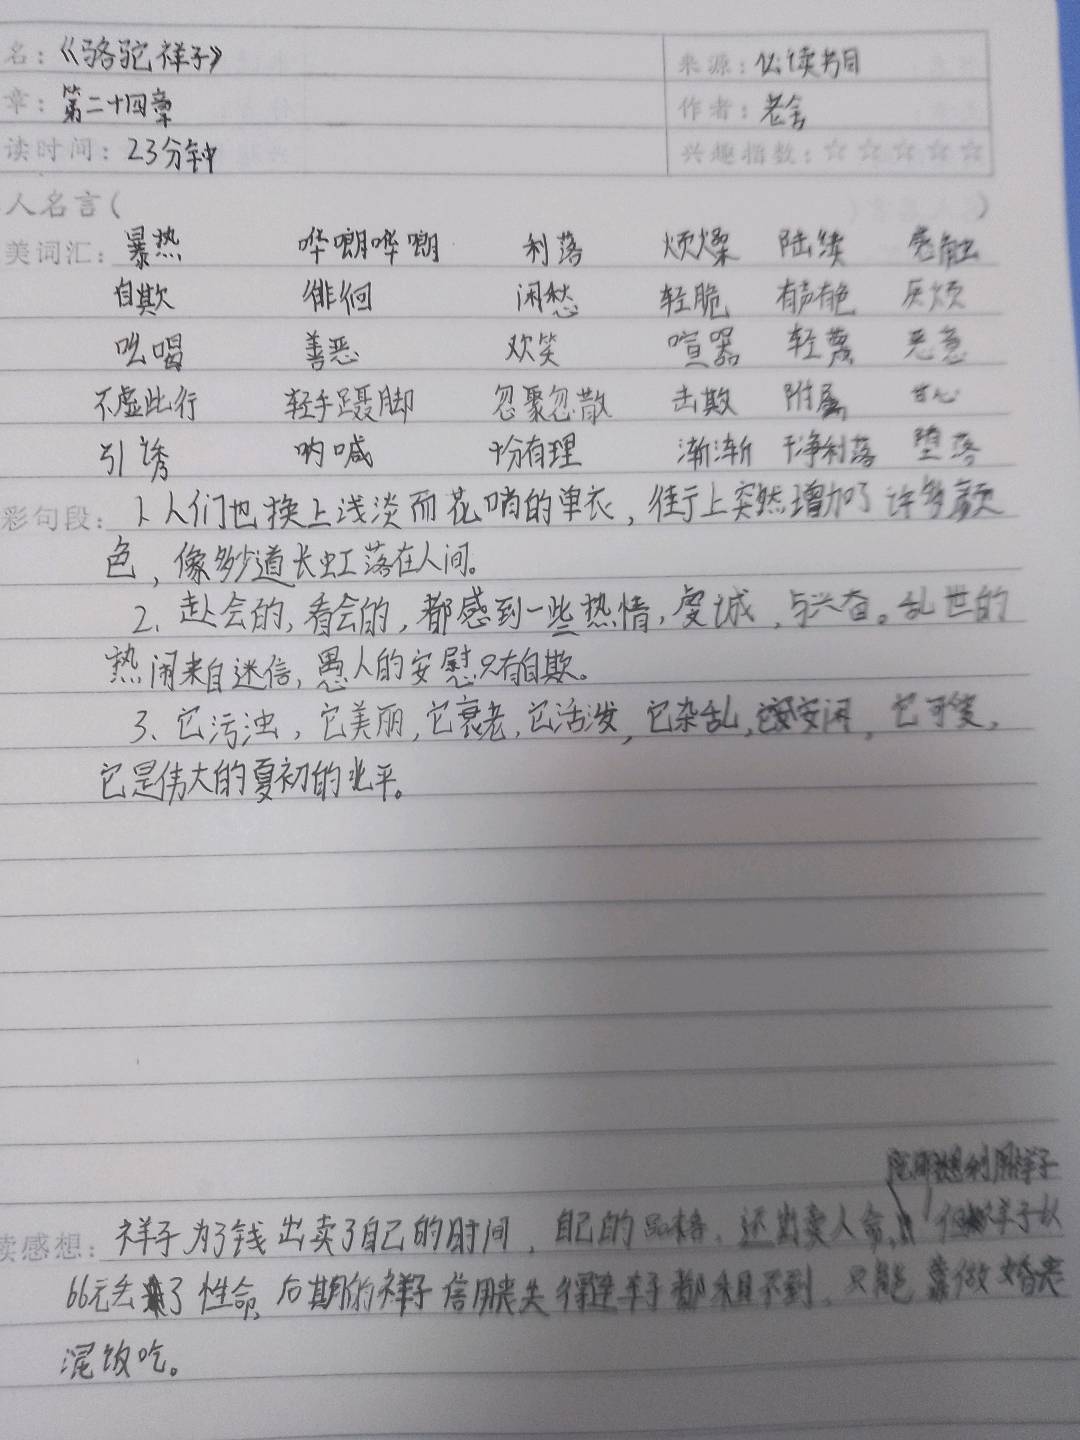 名：《骆驼祥子》 来源：必读书目
章：第二十四章 作者：老舍
读时间：23分钟 兴趣指数：☆☆☆☆☆
人名言（ ）
美词汇：暴热 哗啷哗啷 利落 烦燥 陆续 感触
自欺 徘徊 闲愁 轻脆 有声有色 厌烦
吆喝 善恶 欢笑 喧嚣 轻蔑 恶意
不虚此行 轻手蹑脚 忽聚忽散 击欺 附属 甘心
引诱 呐喊 十分有理 渐渐 干净利落 堕落
彩句段：1、人们也换上浅淡而花哨的单衣，街上突然增加了许多颜
色，像多少道长虹落在人间。
2、赴会的，看会的，都感到一些热情，虔诚，与兴奋。乱世的
热闹来自迷信，愚人的安慰只有自欺。
3、它污浊，它美丽，它衰老，它活泼，它杂乱，它安闲，它可爱，
它是伟大的夏初的北平。
想利用祥子
读感想：祥子为了钱出卖了自己的时间，自己的品格，还出卖人命，祥子以
66元丢了性命，后期的祥子信用丧失得连车子都租不到，只能靠做婚丧
混饭吃。